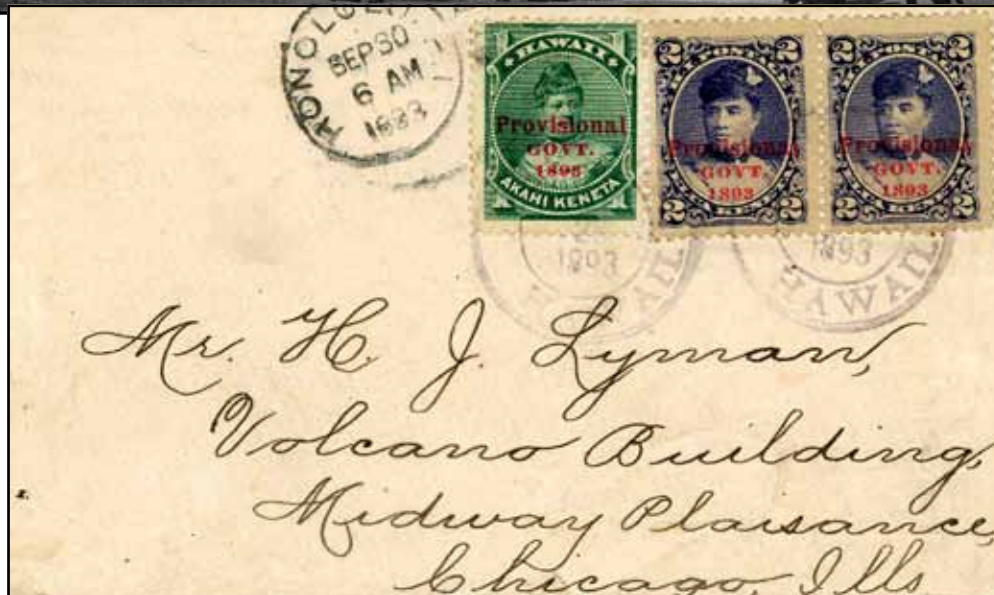 HONOLULU
SEP 30
6 AM
1893
HAWAII
Provisional
GOVT.
1893
AKAHI KENETA
2 2
Provisional
GOVT.
1893
2 2
2 2
Provisional
GOVT.
1893
2 2
1893
HAWAII
1893
HAWAII
Mr. H. J. Lyman,
Volcano Building,
Midway Plaisance,
Chicago, Ills.